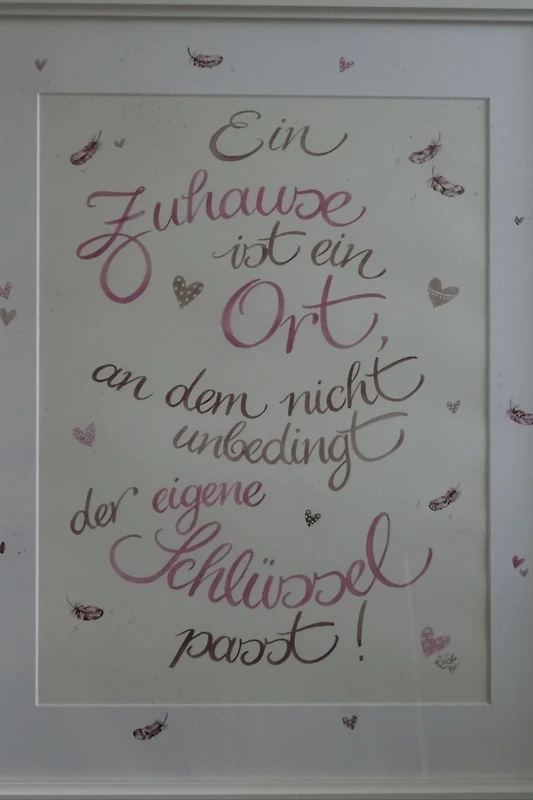 Ein
Zuhause
ist ein
Ort,
an dem nicht
unbedingt
der eigene
Schlüssel
passt!